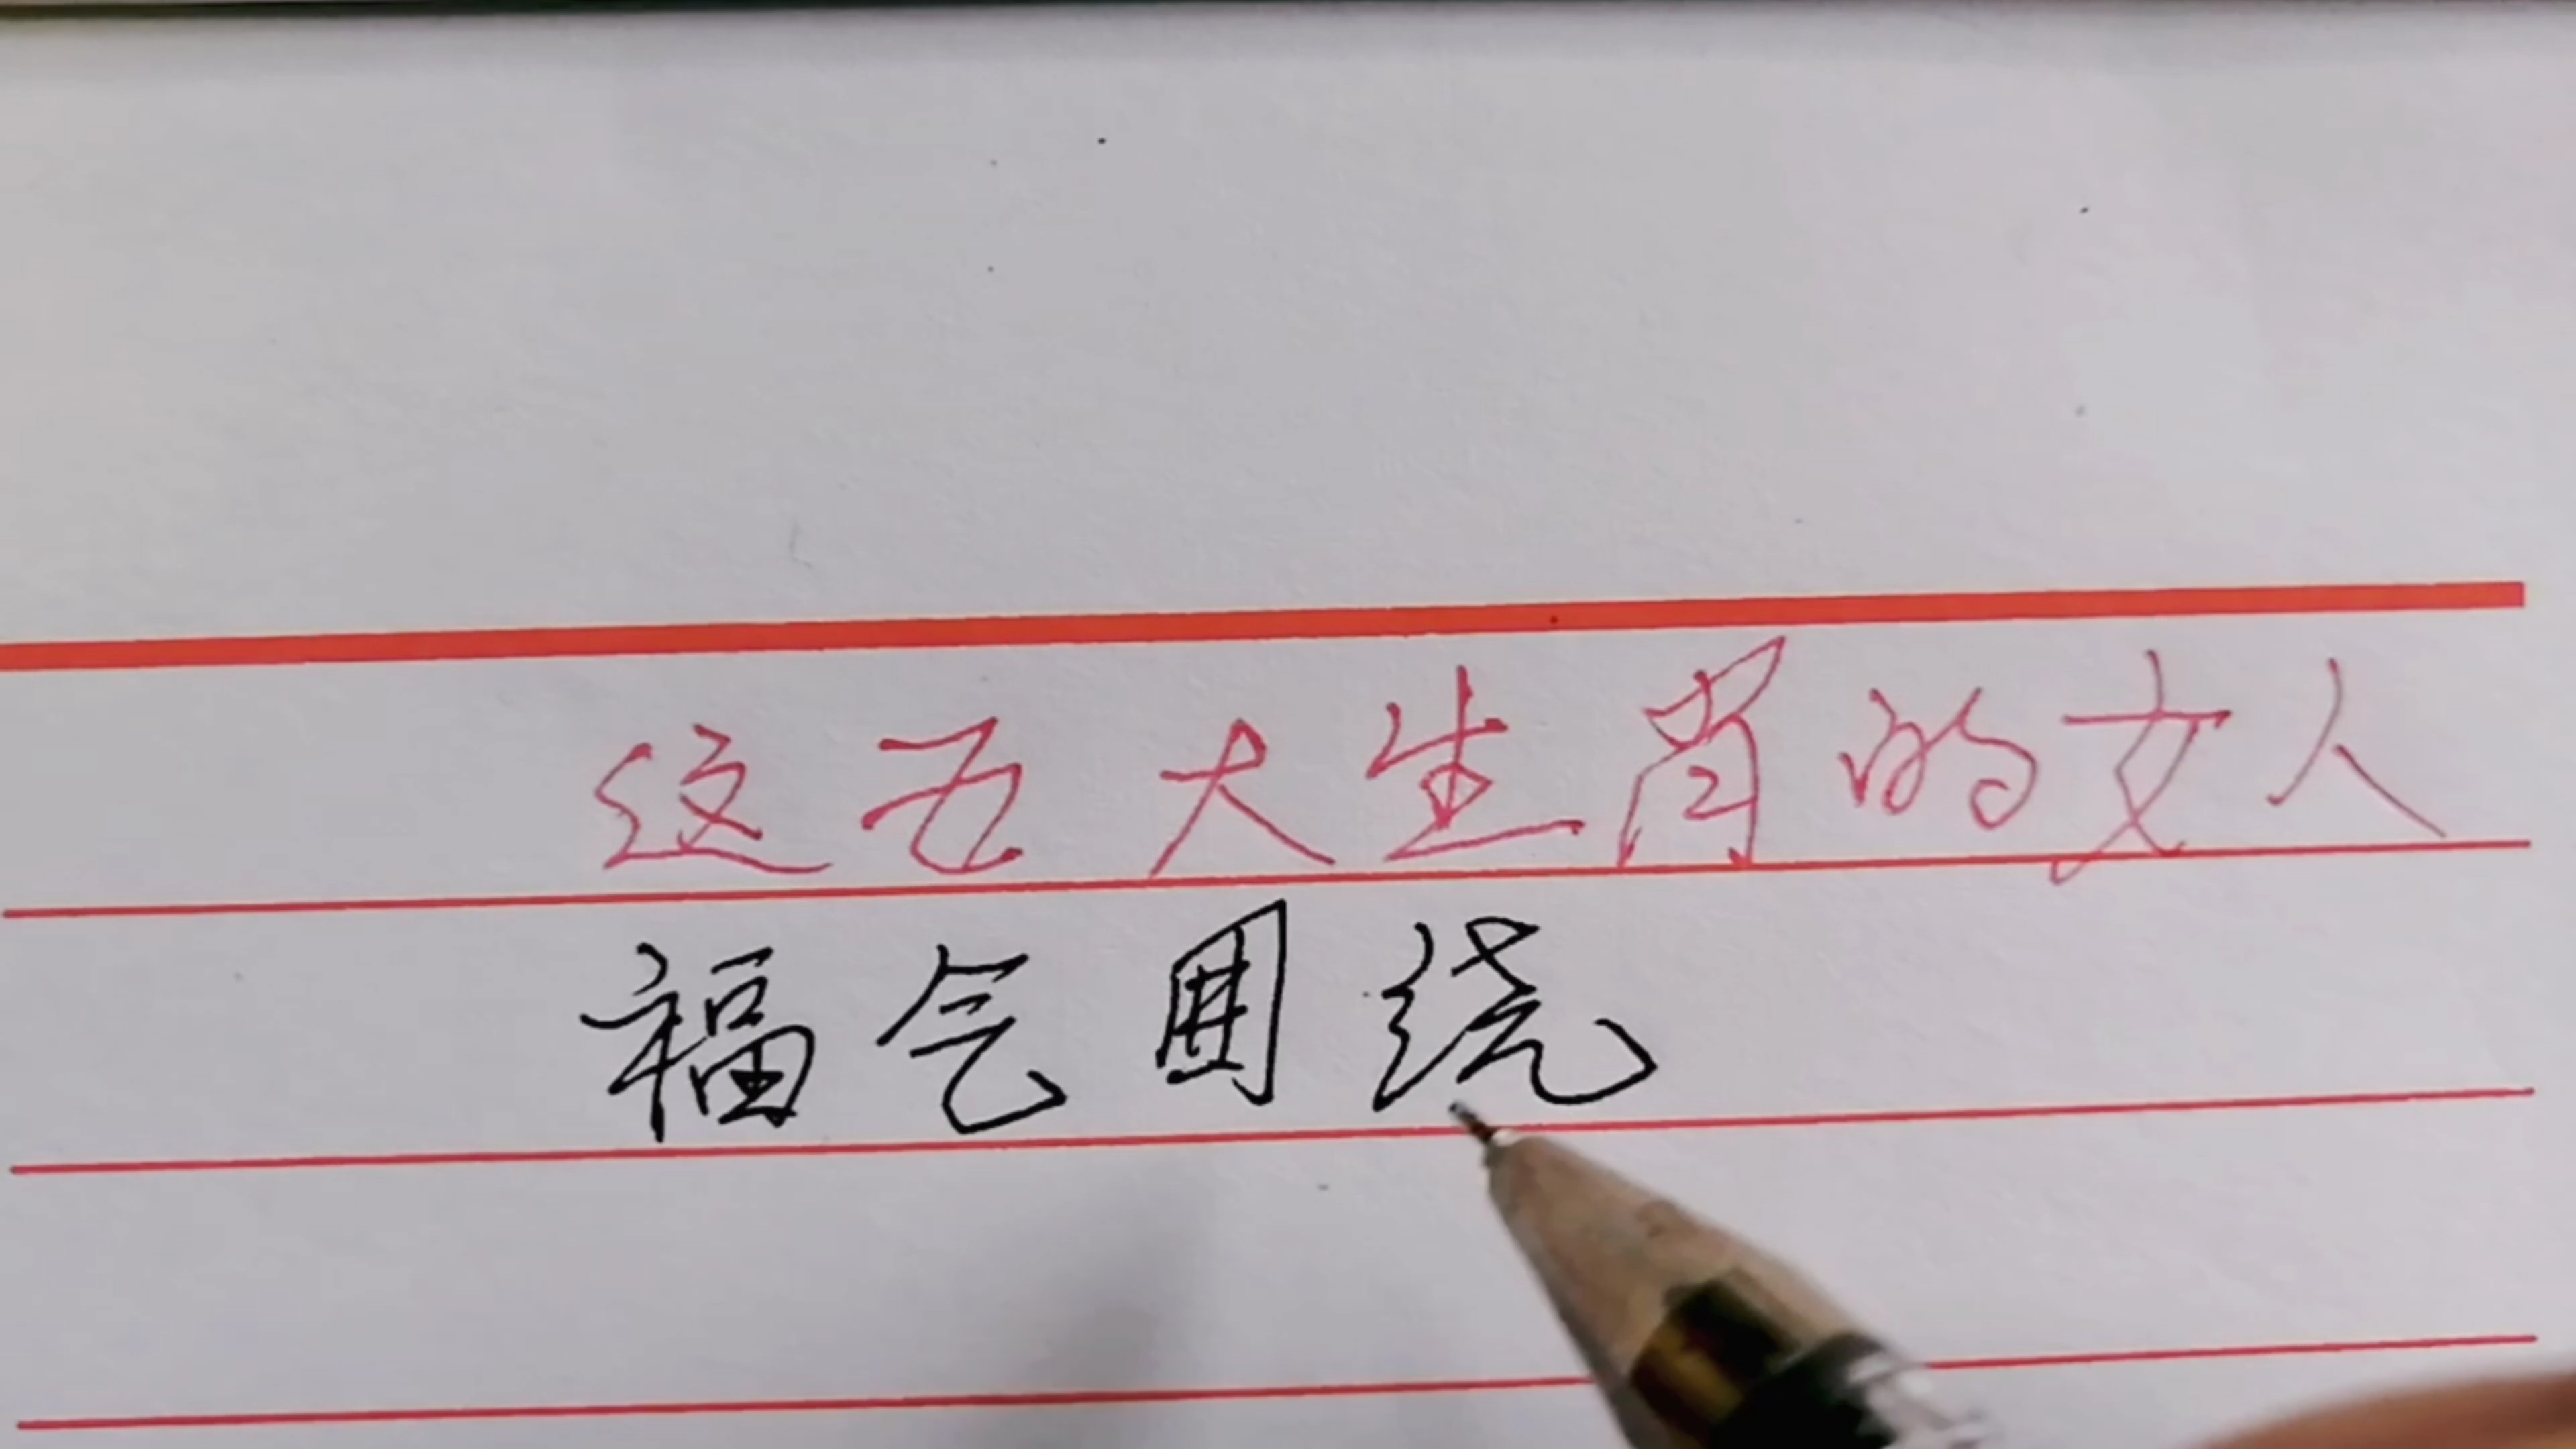 这五大生肖的女人
福气围绕